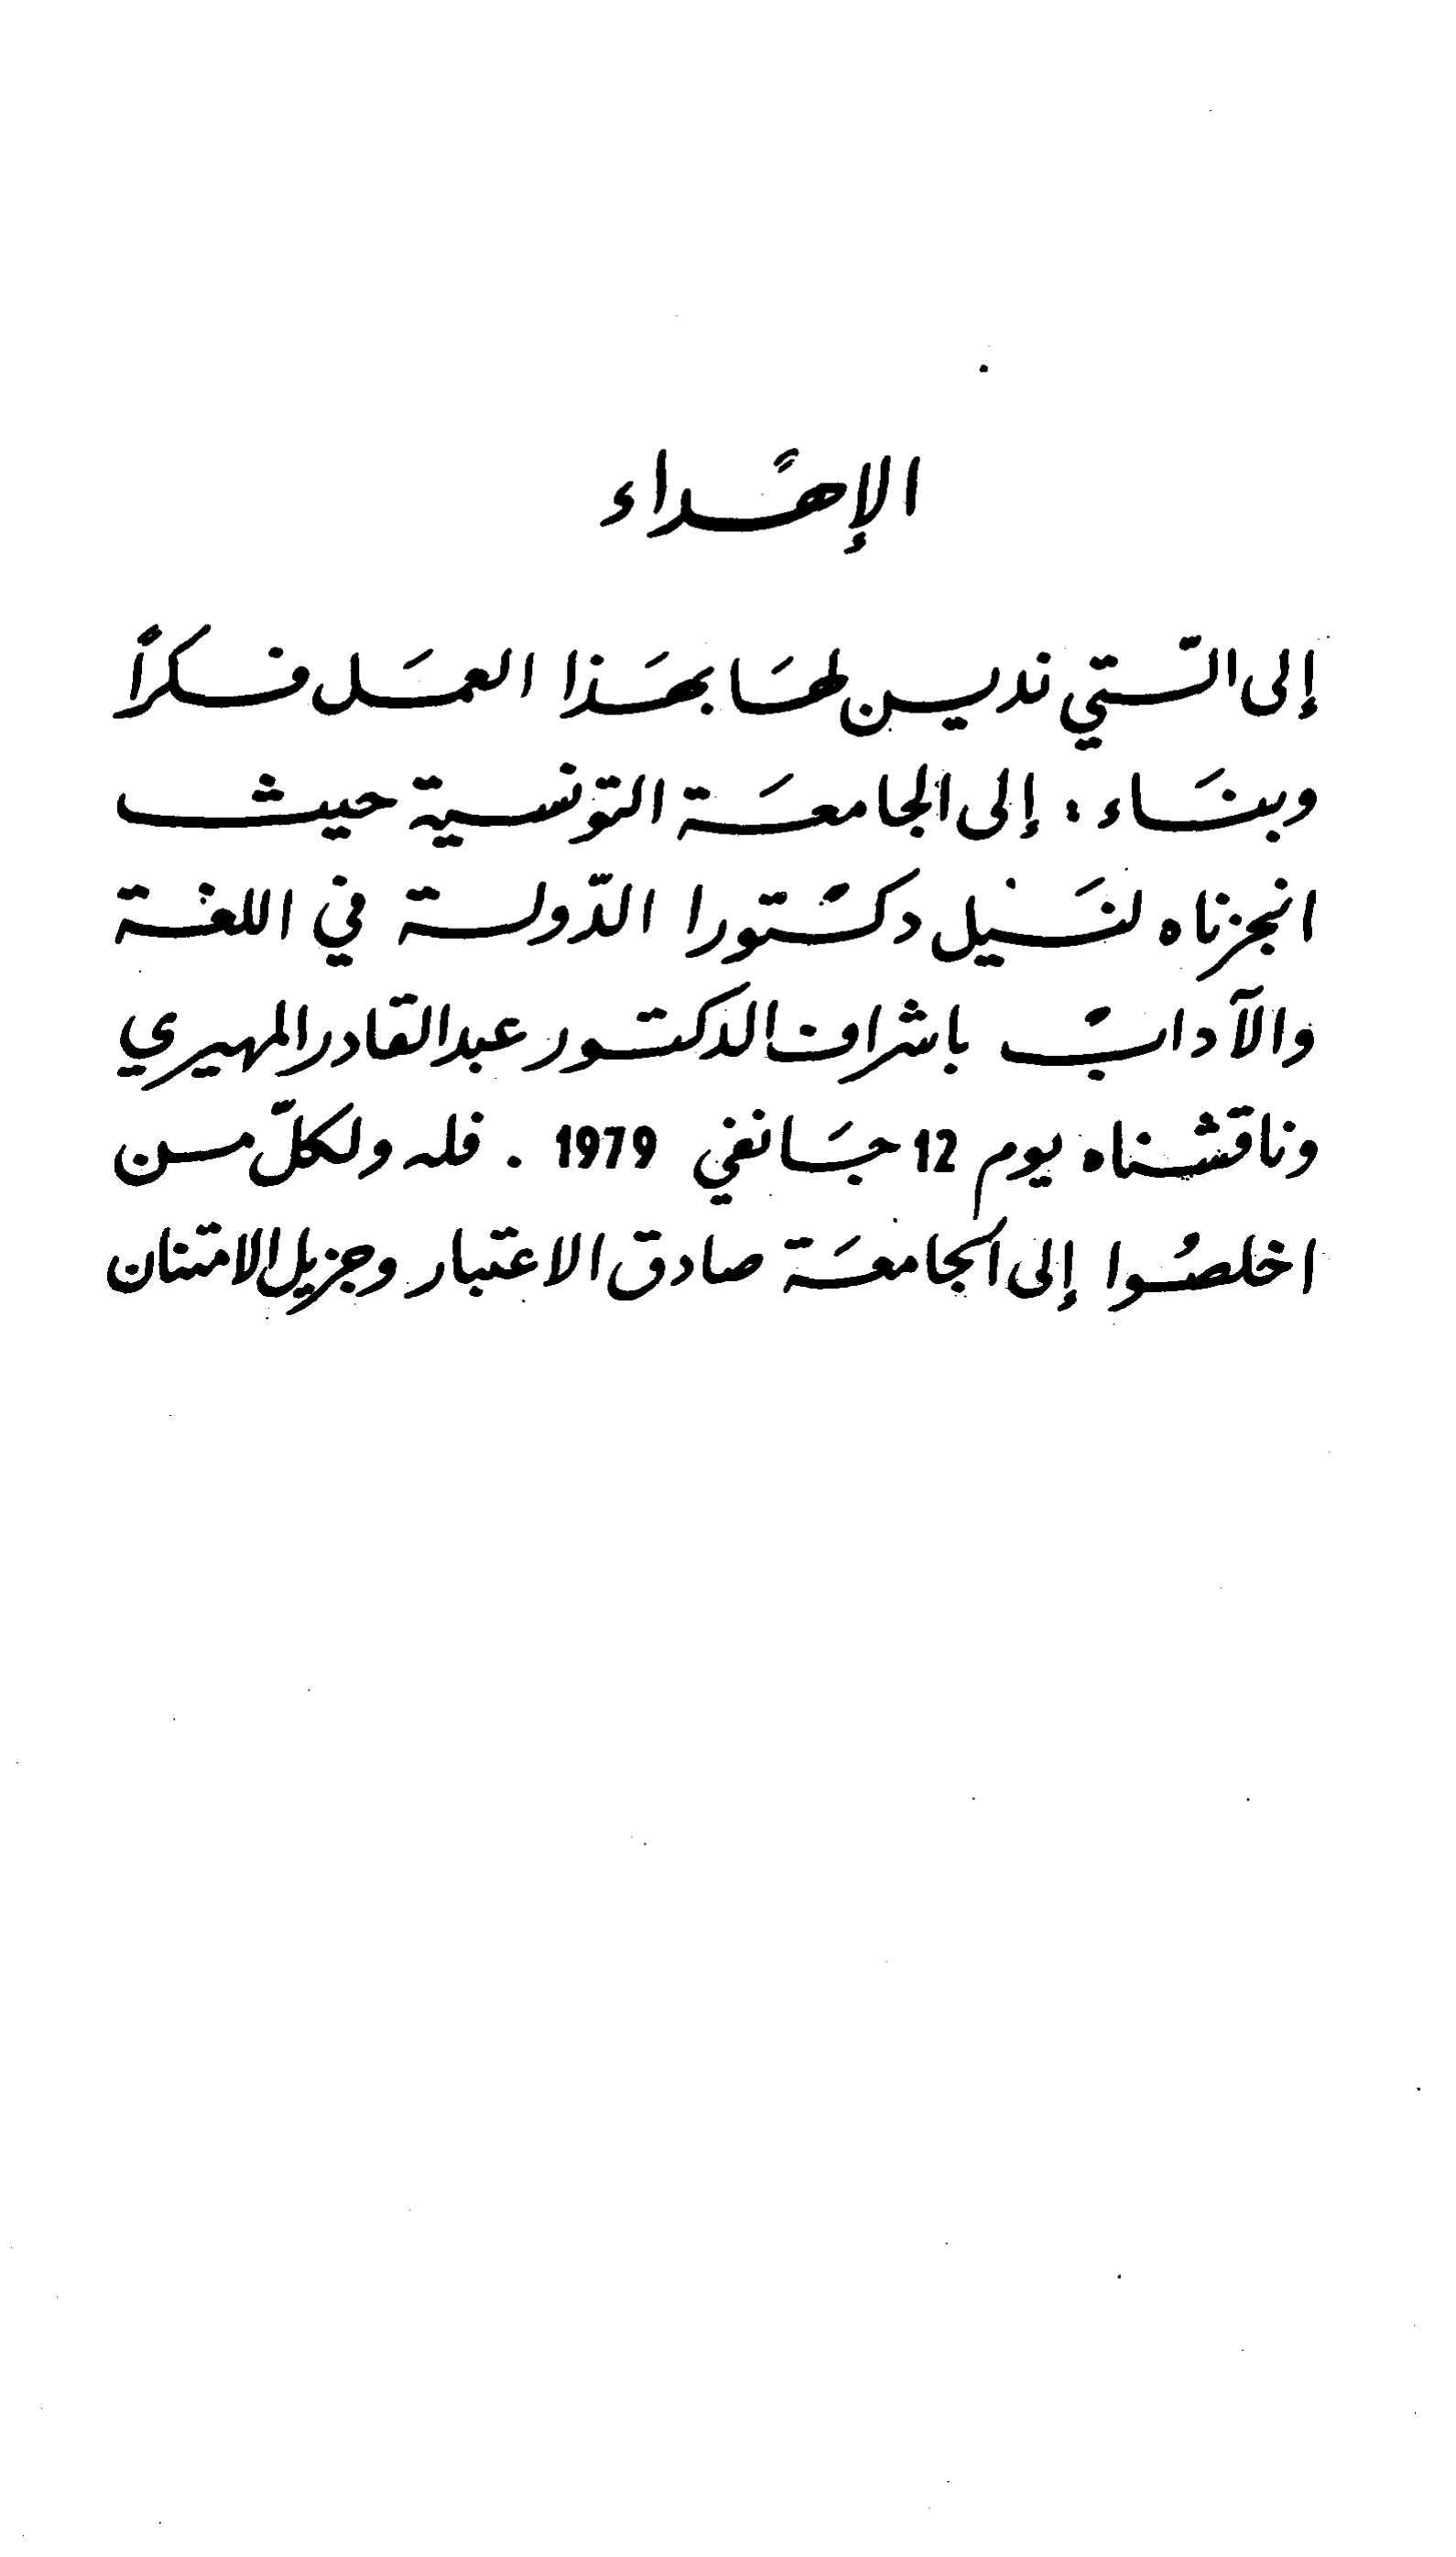 الإهداء
إلى التّي ندين لها بهذا العمل فكراً
وبناء : إلى الجامعة التونسية حيث
انجزناه لنيل دكتورا الدّولة في اللغة
والآداب باشراف الدكتور عبد القادر المهيري
وناقشناه يوم 12 جانفي 1979 . فله ولكلّ من
اخلصُوا إلى الجامعة صادق الاعتبار وجزيل الامتنان